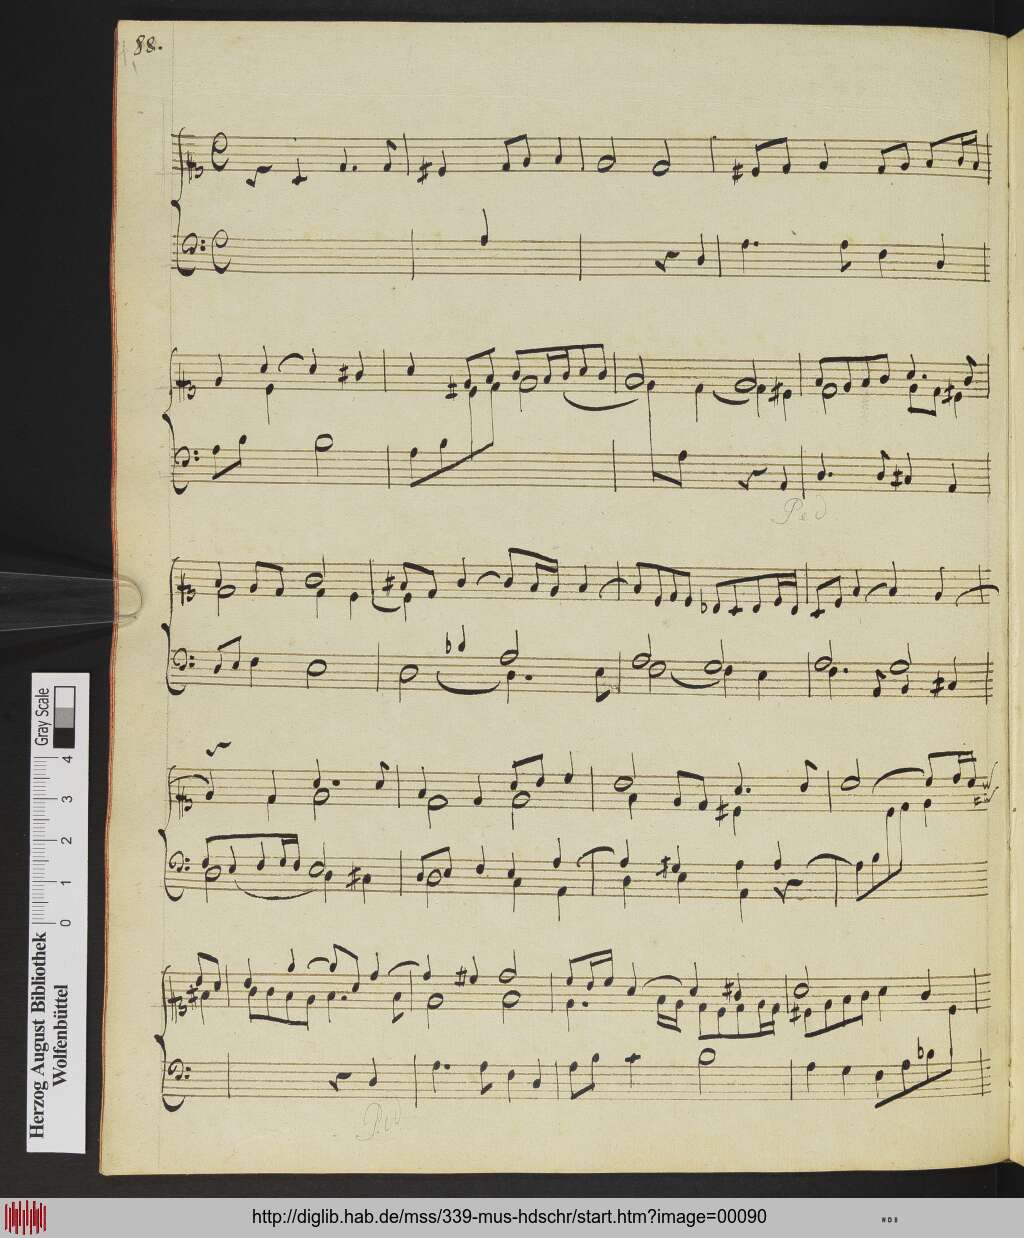 88.
Ped
Ped
Gray Scale
0 1 2 3 4
Herzog August Bibliothek
Wolfenbüttel
http://diglib.hab.de/mss/339-mus-hdschr/start.htm?image=00090
WDB